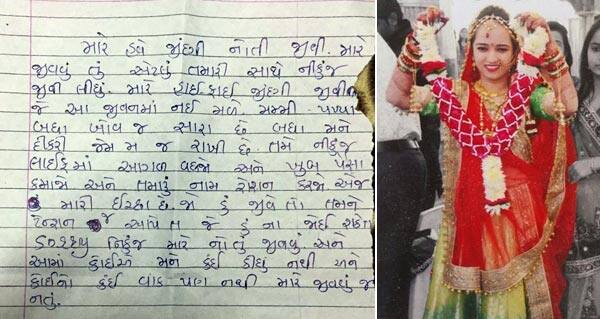 મારે હવે જીંદગી નોતી જીવી. મારે
જીવવું તું એટલું તમારી સાથે નીકુંજ
જીવી લીધું. મારે હાઈફાઈ જીંદગી
જે આ જીવનમાં નઈ મળે મમ્મી - પપ્પા
બધા જ સારા છે. બધા મને
દીકરી જેમ મ જ રાખી છે. તમે નીકુંજ
લાઈફમાં આગળ વધજો અને ખુબ પૈસા
કમાજો અને તમારું નામ રોશન કરજો એજ
મારી ઈચ્છા છે. જો હું તમને
ટેન્શન જ આપે ત જે હું ના જોઈ શકત
sorry નિકુંજ મારે નો તું જીવવું અને
આમાં કોઈએ મને કંઈ કીધું નથી અને
કોઈનો કંઈ વાક પણ નથી મારે જીવવું જ
નતું.